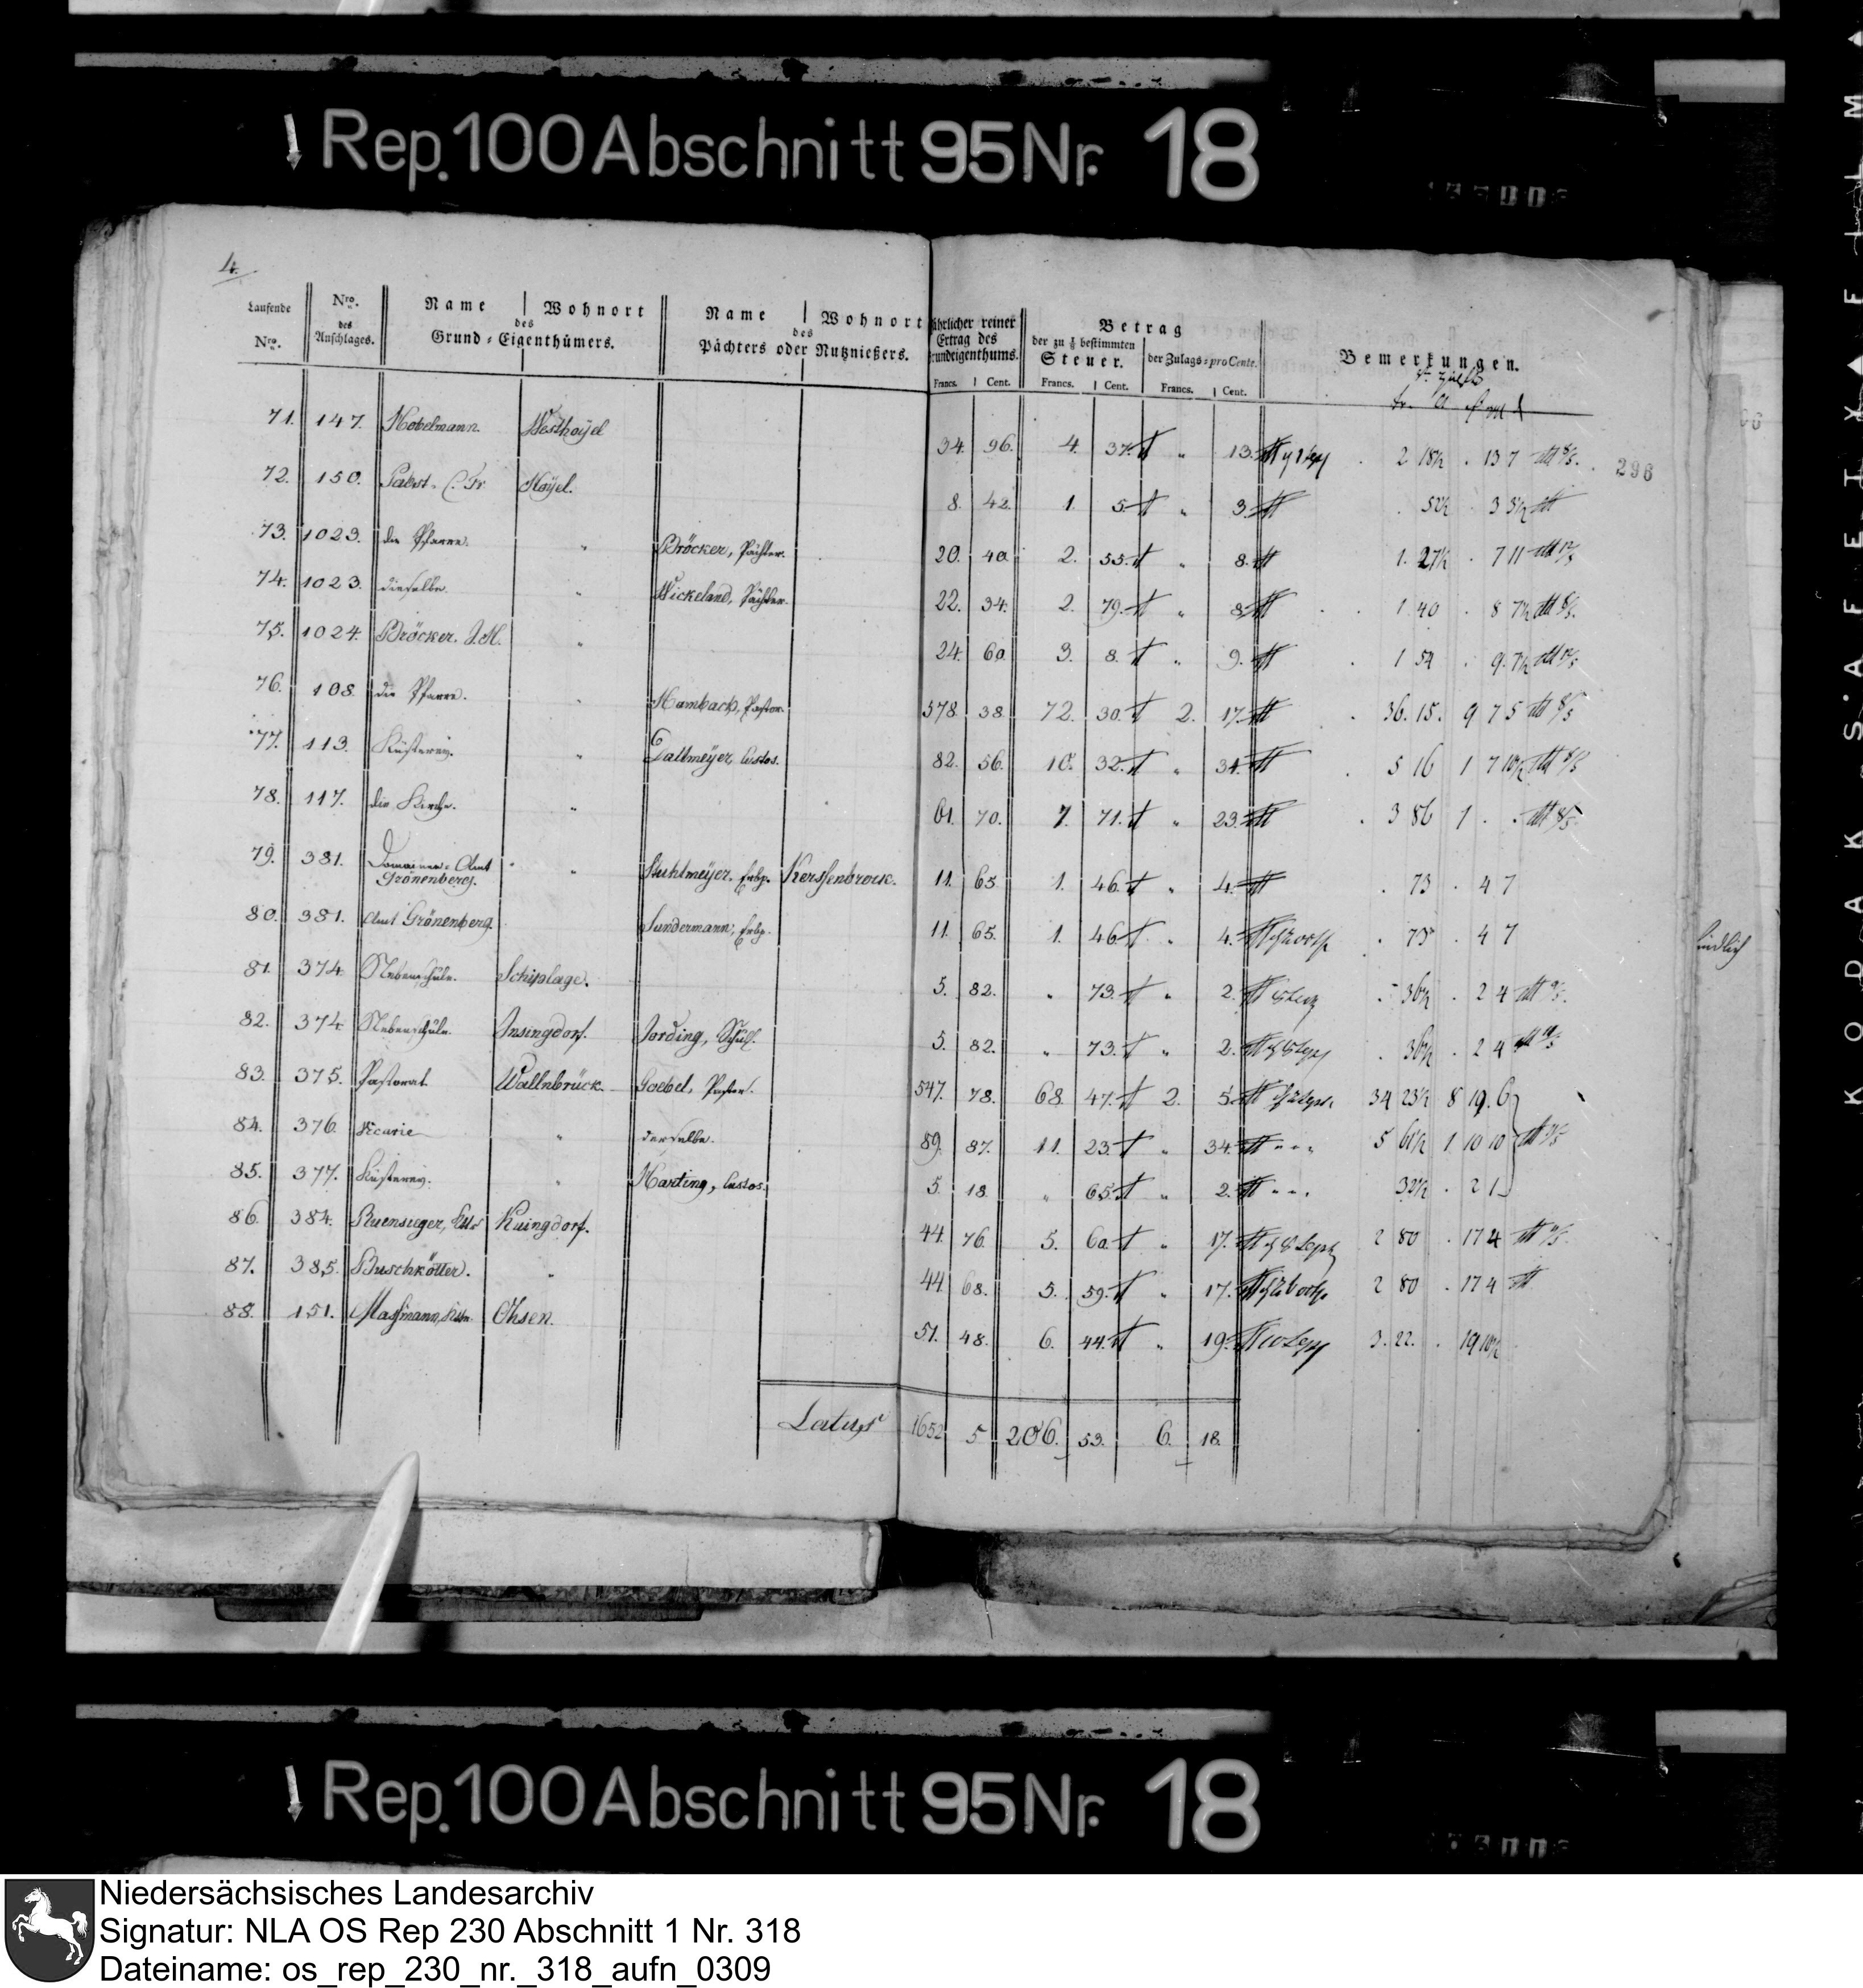 Rep. 100 Abschnitt 95 Nr. 18
4.
Laufende Nro. | Nro. des Anschlages. | Name | Wohnort des Grund-Eigenthümers. | Name | Wohnort des Pächters oder Nutznießers. | ährlicher reiner Ertrag des rundeigenthums. Francs. Cent. | Betrag der zu 1/8 bestimmten Steuer. Francs. Cent. | der Zulags-pro Cente. Francs. Cent. | Bemerkungen.
71. 147. Nobelmann. Westhoyel 34. 96. 4. 37. " 13. 2 18½ . 13 7
296
72. 150. Pabst. C. Fr. Hoyel. 8. 42. 1. 5. " 3. . 52½ . 3 3½
73. 1023. die Pfarre. " Bröcker, Pächter. 20. 40. 2. 55. " 8. 1. 27½ . 7 11
74. 1023. dieselbe. " Wickeland, Pächter. 22. 34. 2. 79. " 8. 1 40 . 8 7½
75. 1024. Bröcker. J.M. " 24. 60. 3. 8. " 9. 1 54 . 9. 7½
76. 108. die Pfarre. " Hambach, Pastor. 578. 38. 72. 30. 2. 17. 36. 15. 9 7 5
77. 113. Küsterey. " Dallmeyer, Custos. 82. 56. 10. 32. " 31. 5 16 1 7 10½
78. 117. die Kirche. " 61. 70. 7. 71. " 23. 3 86 1 . .
79. 381. Domainen-Amt Grönenberg. " Stuhlmeyer, Erbp. Kerssenbrock. 11. 65. 1. 46. " 4. . 73 . 4 7
80. 381. Amt Grönenberg. Sundermann, Erbp. 11. 65. 1. 46. " 4. . 73 . 4 7
81. 374. Nebenschule. Schiplage. 5. 82. " 73. " 2. . 36½ . 2 4
82. 374. Nebenschule. Insingdorf. Jording, Schull. 5. 82. " 73. " 2. . 36½ . 2 4
83. 375. Pastorat. Wallnbrück. Goebel, Pastor. 547. 78. 68. 47. 2. 5. 34 23½ 8 19. 6
84. 376. Vicarie " derselbe. 89. 87. 11. 23. " 34. 5 61½ 1 10 10
85. 377. Küsterey. " Harting, Custos. 5. 18. " 65. " 2. 32½ . 2 1
86. 384. Ruensieger, Kuingdorf. 44. 76. 5. 60. " 17. 2 80 . 17 4
87. 385. Buschkötter. " 44. 68. 5. 59. " 17. 2 80 . 17 4
88. 151. Massmann, Ohsen. 51. 48. 6. 44. " 19. 3. 22. . 19 10½
Latus 1652 5 206. 53. 6. 18.
Rep. 100 Abschnitt 95 Nr. 18
Niedersächsisches Landesarchiv
Signatur: NLA OS Rep 230 Abschnitt 1 Nr. 318
Dateiname: os_rep_230_nr._318_aufn_0309